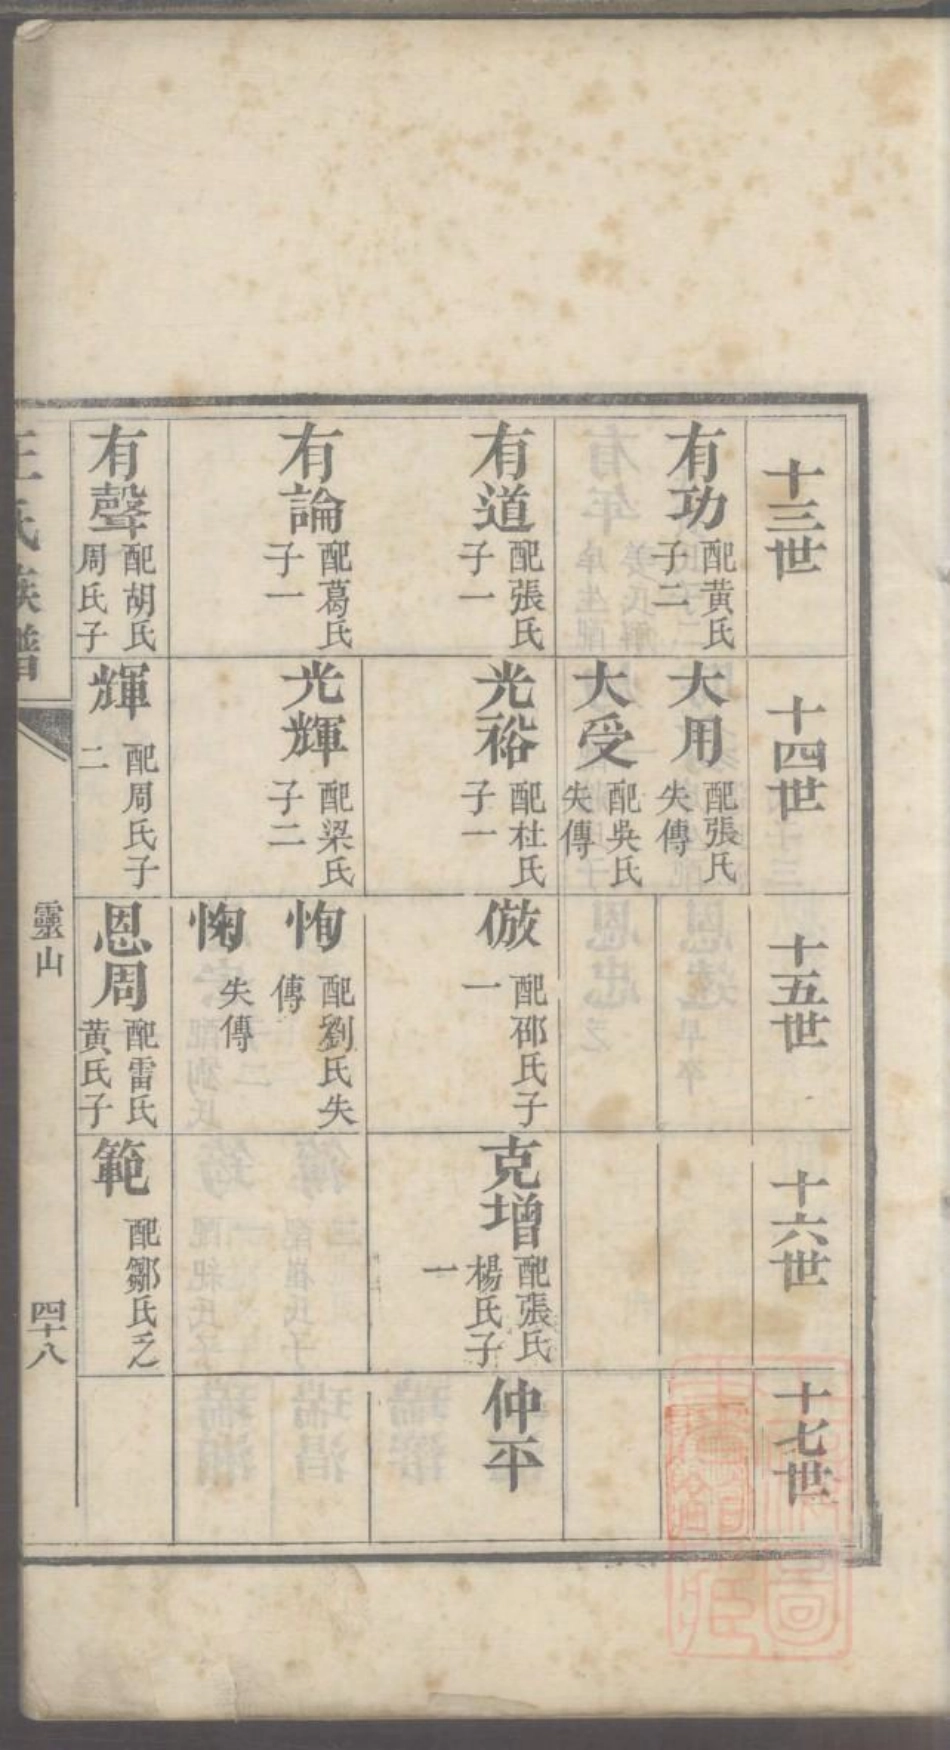 十三世
有功 配黄氏子二
有道 配張氏子一
有論 配葛氏子一
有聲 配胡氏周氏子
十四世
大用 配張氏失傳
大受 配吳氏失傳
光裕 配杜氏子一
光輝 配梁氏子二
輝 配周氏子二
十五世
倣 配邳氏子一
恂 配劉氏失傳
失傳
恩周 配雷氏黄氏子
十六世
克增 配張氏楊氏子一
範 配鄒氏乏
十七世
仲平
王氏族譜
靈山
四十八